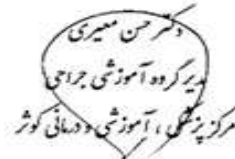 دکتر حسن معیری
مدیر گروه آموزشی جراحی
مرکز پزشکی ، آموزشی و درمانی کوثر